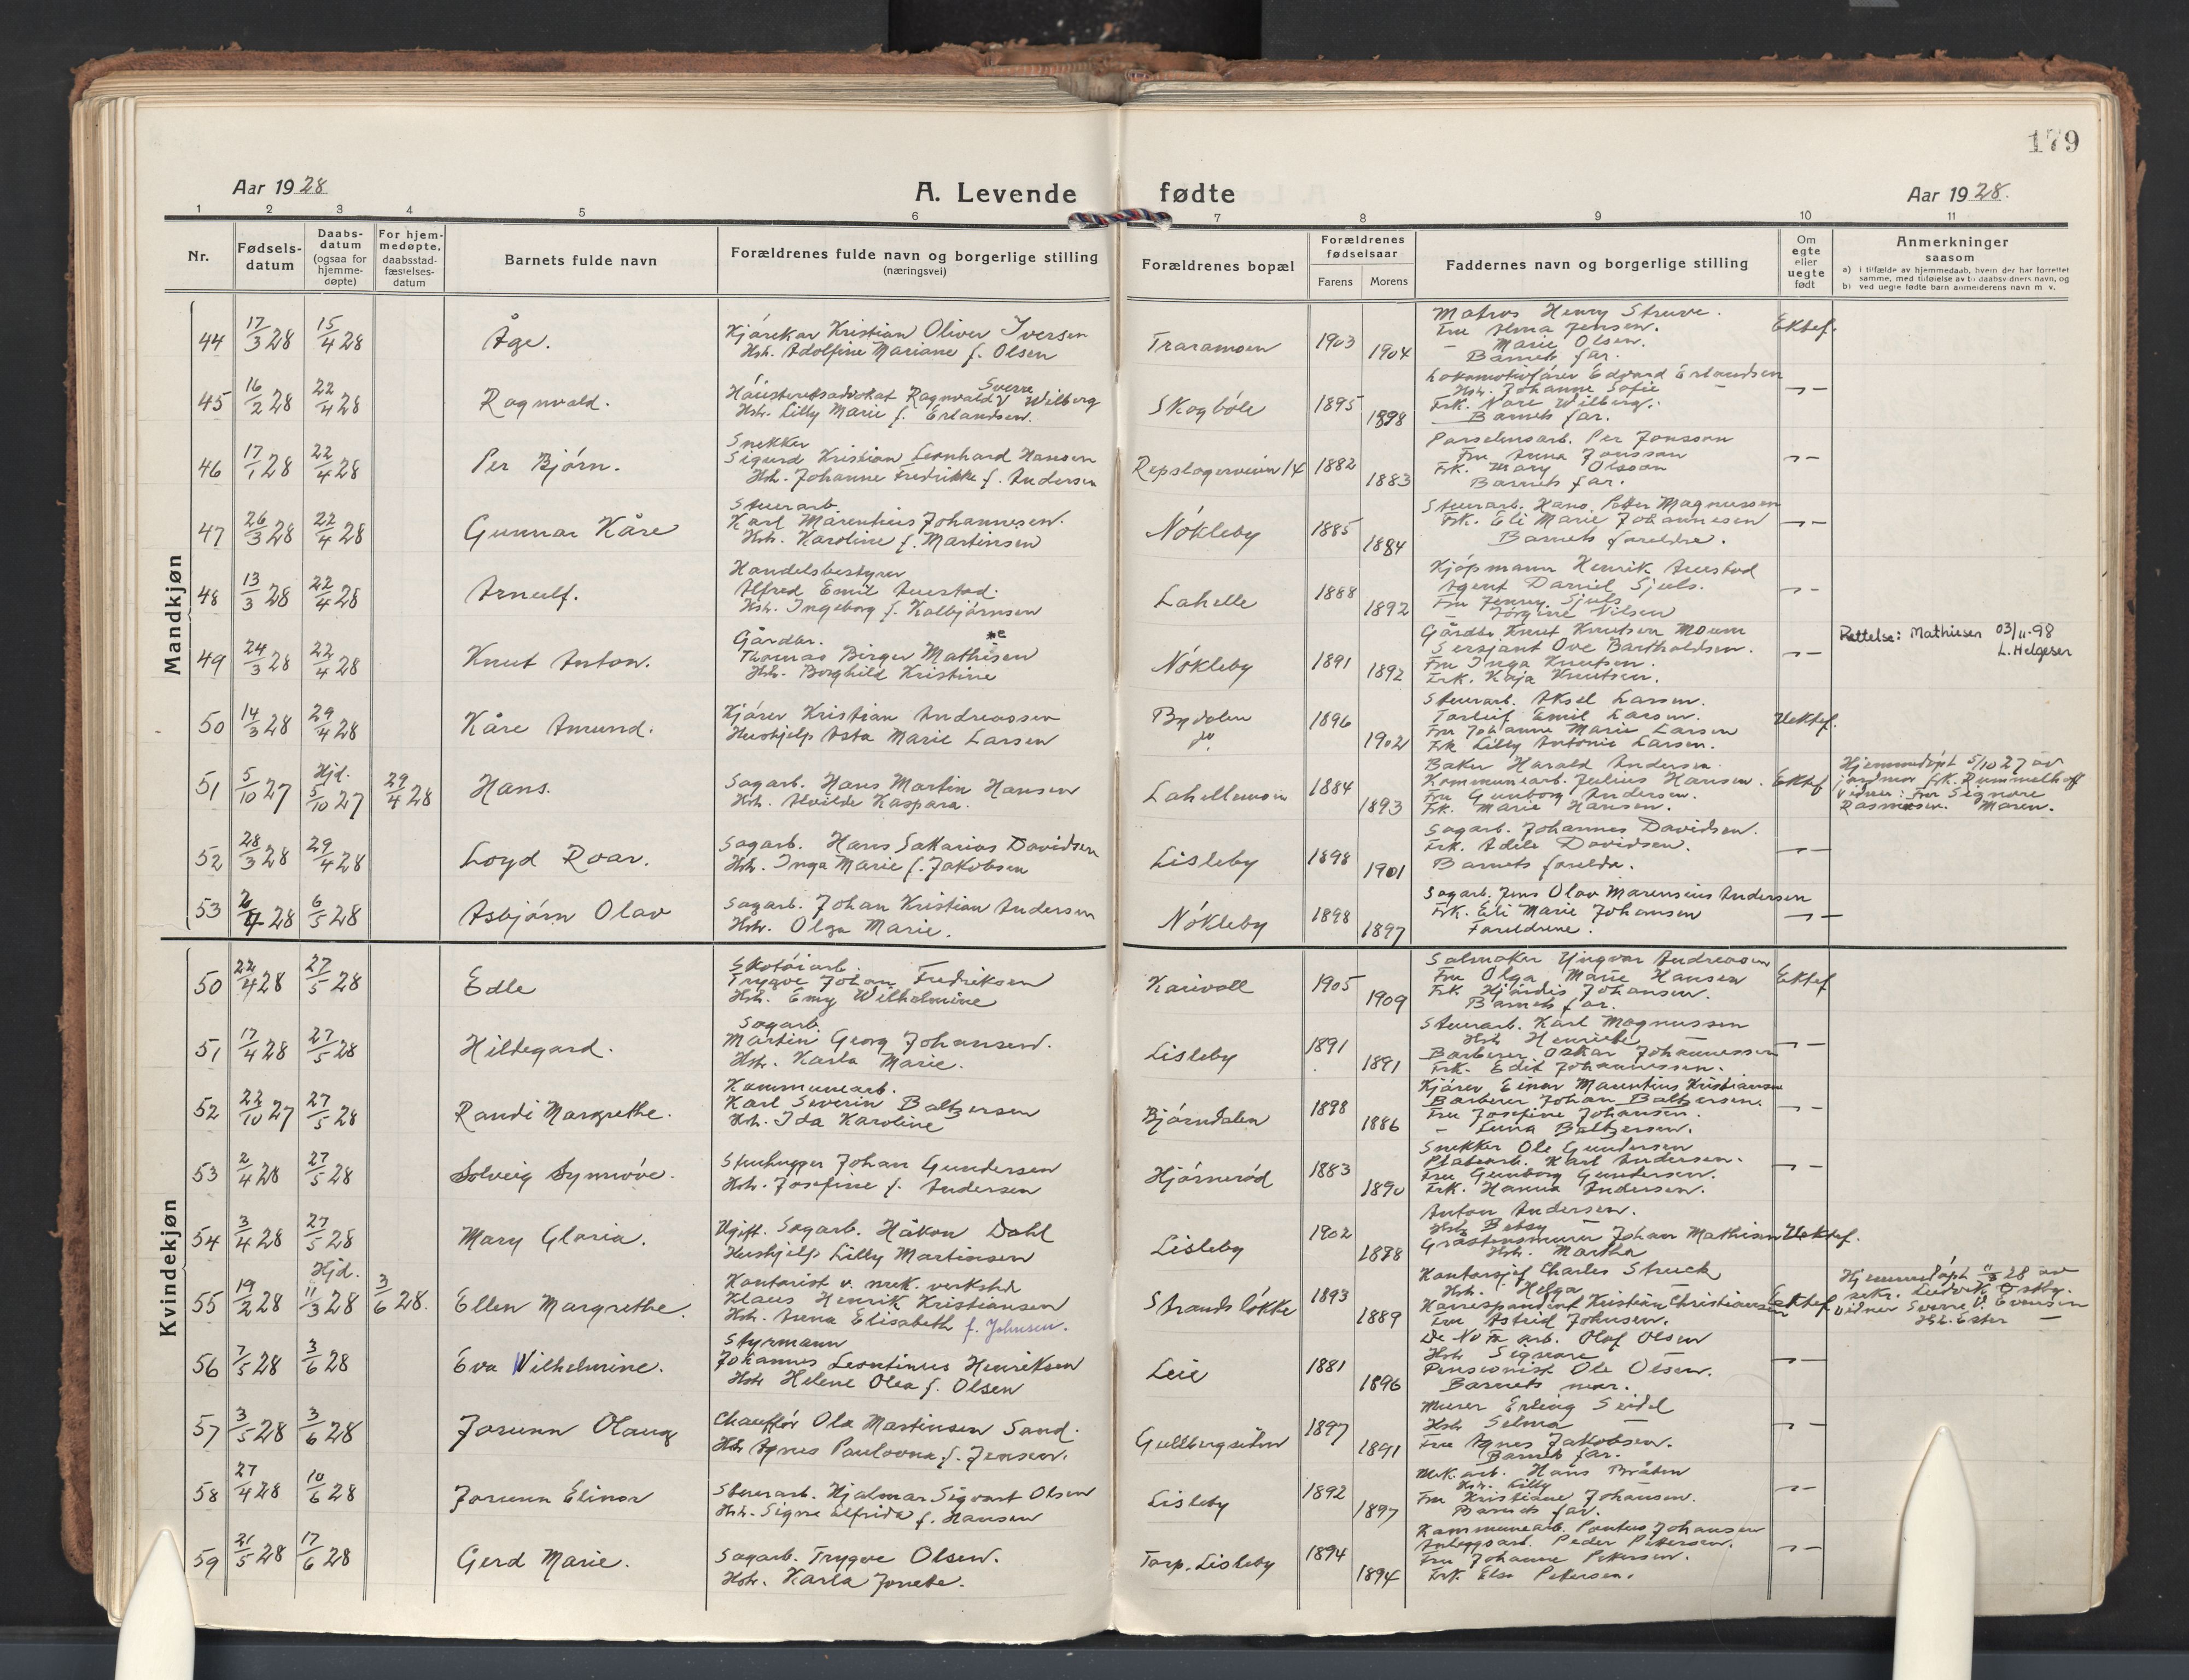 179
Aar 1928
A. Levende fødte
Aar 1928.
1 2 3 4 5 6 7 8 9 10 11
Nr.
Fødselsdatum
Daabsdatum (ogsaa for hjemmedøpte)
For hjemmedøpte, daabsstadfæstelsesdatum
Barnets fulde navn
Forældrenes fulde navn og borgerlige stilling
(næringsvei)
Forældrenes bopæl
Forældrenes fødselsaar
Farens Morens
Faddernes navn og borgerlige stilling
Om egte eller uegte født
Anmerkninger
saasom
a) i tilfælde av hjemmedaab, hvem der har forrettet samme, med tilføielse av to daabsvidners navn, og
b) ved uegte fødte barn anmelderens navn m. v.
Mandkjøn
44 17/3 28 15/4 28 Åge.
Kjørekar Kristian Oliver Iversen
Hstr. Adolfine Mariane f. Olsen
Traramoen 1903 1904
Matros Henry Struve.
Fru Alma Jensen.
— Marie Olsen.
Barnets far.
Ektef.
45 16/2 28 22/4 28 Ragnvald.
Høiesteretsadvokat Ragnvald Sverre Wilberg
Hstr. Lilly Marie f. Erlandsen.
Skogbøle 1895 1898
Lokomotivfører Edvard Erlandsen
Hstr. Johanne Sofie —
Frk. Nare Wilberg.
Barnets far.
— " —
46 17/1 28 22/4 28 Per Bjørn.
Snekker
Sigurd Kristian Leonhard Hansen
Hstr. Johanne Fredrikke f. Andersen
Repslagerveien 14 1882 1883
Porselensarb. Per Jonsson
Fru Anna Jonsson
Frk. Mary Olsson
Barnets far.
— " —
47 26/3 28 22/4 28 Gunnar Kåre
Stuerarb.
Karl Marentius Johannesen.
Hstr. Karoline f. Martinsen
Nøkleby 1885 1884
Stuerarb. Hans Peter Magnussen
Frk. Eli Marie Johannesen
Barnets foreldre.
— " —
48 13/3 28 22/4 28 Arnulf.
Handelsbestyrer
Alfred Emil Auestad.
Hstr. Ingeborg f. Kolbjørnsen
Lahelle 1888 1892
Kjøpmann Henrik Auestad
Agent Daniel Sjuls.
Fru Jenny Sjuls
— Jørgine Nilsen
— " —
49 24/3 28 22/4 28 Knut Anton.
Gårdbr.
Thomas Birger Mathisen *e
Hstr. Borghild Kristine
Nøkleby 1891 1892
Gårdbr. Knut Knutsen Moum
Sersjant Ove Bartholdsen.
Fru Inga Knutsen.
Frk. Kaja Knutsen.
— " —
Rettelse: Mathiesen 03/11-98
L. Helgesen
50 14/3 28 29/4 28 Kåre Amund.
Kjører Kristian Andreassen
Hushjelp Asta Marie Larsen
Bydalen
do. 1896 1902
Stuerarb. Aksel Larsen.
Torleif Emil Larsen.
Fru Johanne Marie Larsen
Frk Lilly Antonie Larsen.
Uektef.
51 5/10 27 Hjd. 5/10 27 29/4 28 Hans.
Sagarb. Hans Martin Hansen
Hstr. Alvilde Kaspara.
Lahellemoen 1884 1893
Baker Harald Andersen.
Kommunearb. Julius Hansen.
Fru Gunborg Andersen.
Frk. Marie Hansen.
Ektef
Hjemmedøpt 5/10 27 av
jordmor frk. Rummelhoff
Vidner: Fru Signore
Rasmussen. Maren.
52 28/3 28 29/4 28 Loyd Roar.
Sagarb. Hans Sakarias Davidsen
Hstr. Inga Marie f. Jakobsen
Lisleby 1898 1901
Sagarb. Johannes Davidsen.
Frk. Adele Davidsen.
Barnets foreldre.
— " —
53 2/4 28 6/5 28 Asbjørn Olav
Sagarb. Johan Kristian Andersen
Hstr. Olga Marie.
Nøkleby 1898 1897
Sagarb. Jens Olav Marensius Andersen
Frk. Eli Marie Johansen
Foreldrene.
— " —
Kvindekjøn
50 22/4 28 27/5 28 Edle
Skotøiarb.
Trygve Johan Fredriksen
Hstr. Emy Wilhelmine
Karivoll 1905 1909
Salmaker Yngvar Andreassen
Fru Olga Marie Hansen
Frk. Hjørdis Johansen.
Barnets far.
Ektef
51 17/4 28 27/5 28 Hildegard.
Sagarb.
Martin Georg Johansen.
Hstr. Karla Marie.
Lisleby 1891 1891
Stuerarb. Karl Magnussen
Hstr. Henriette —
Barberer Oskar Johannessen
Frk. Edit Johannessen.
— " —
52 22/10 27 27/5 28 Randi Margrethe.
Kommunearb.
Karl Severin Baltzersen
Hstr. Ida Karoline
Bjørndalen 1898 1886
Kjører Einar Marentius Kristiansen
Barberer Johan Baltzersen.
Fru Josefine Johansen.
— Luna Baltzersen.
— " —
53 2/4 28 27/5 28 Solveig Synnøve.
Stenhugger Johan Gundersen
Hstr. Josefine f. Andersen
Hjørnerød 1883 1890
Snekker Ole Gundersen
Platearb. Karl Andersen.
Fru Gunborg Gundersen.
Frk. Hanna Andersen.
— " —
54 3/4 28 27/5 28 Mary Gloria.
Ugift. Sagarb. Håkon Dahl
Hushjelp Lilly Martinsen
Lisleby 1902 1898
Anton Andersen.
Hstr. Betsy —
Gråstensmurer Johan Mathisen
Hstr. Martha
Uektef.
55 19/2 28 Hjd. 11/3 28 3/6 28. Ellen Margrethe.
Kontorist v. mek. verksted
Klaus Henrik Kristiansen
Hstr. Anna Elisabeth f. Johnsen.
Strandsløkke 1893 1889
Kontorsjef Charles Struck
Hstr. Helga
Korrespondent Kristian Christiansen
Fru Astrid Johnsen.
Ektef
Hjemmedøpt 11/3 28 av
sekr. Ludvik Østby.
Vidner Sverre V. Evensen
Hst. Ester —
56 7/5 28 3/6 28 Eva Wilhelmine.
Styrmann
Johannes Leontinus Henriksen
Hstr Helene Olea f. Olsen
Leie 1881 1896
De No Fa arb. Olaf Olsen
Hstr Signore —
Pensionist Ole Olsen.
Barnets mor.
— " —
57 3/5 28 3/6 28 Jorunn Olaug
Chauffør Ola Martinsen Sand.
Hstr Agnes Paulovna f. Jensen.
Gullbergseten 1897 1891
Murer Erling Seidel
Hstr Selma —
Fru Agnes Jakobsen.
Barnets far.
— " —
58 27/4 28 10/6 28 Jorunn Elinor
Stuerarb. Hjalmar Sigvart Olsen
Hstr. Signe Elfrida f. Hansen
Lisleby 1892 1897
Mek. arb. Hans Bråten
Hstr. Lilly —
Fru Kristiane Johansen.
Barnets far.
— " —
59 21/5 28 17/6 28 Gerd Marie.
Sagarb. Trygve Olsen.
Hstr. Karla Jonette.
Torp, Lisleby 1894 1894
Kommunearb. Pontus Johansen
Anleggsarb. Peder Petersen.
Fru Johanne Petersen.
Frk. Elsa Petersen.
— " —